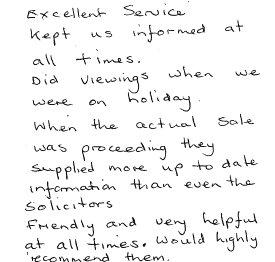 Excellent Service
Kept us informed at
all times.
Did viewings when we
were on holiday.
When the actual sale
was proceeding they
supplied more up to date
information than even the
solicitors
Friendly and very helpful
at all times. Would highly
recommend them.